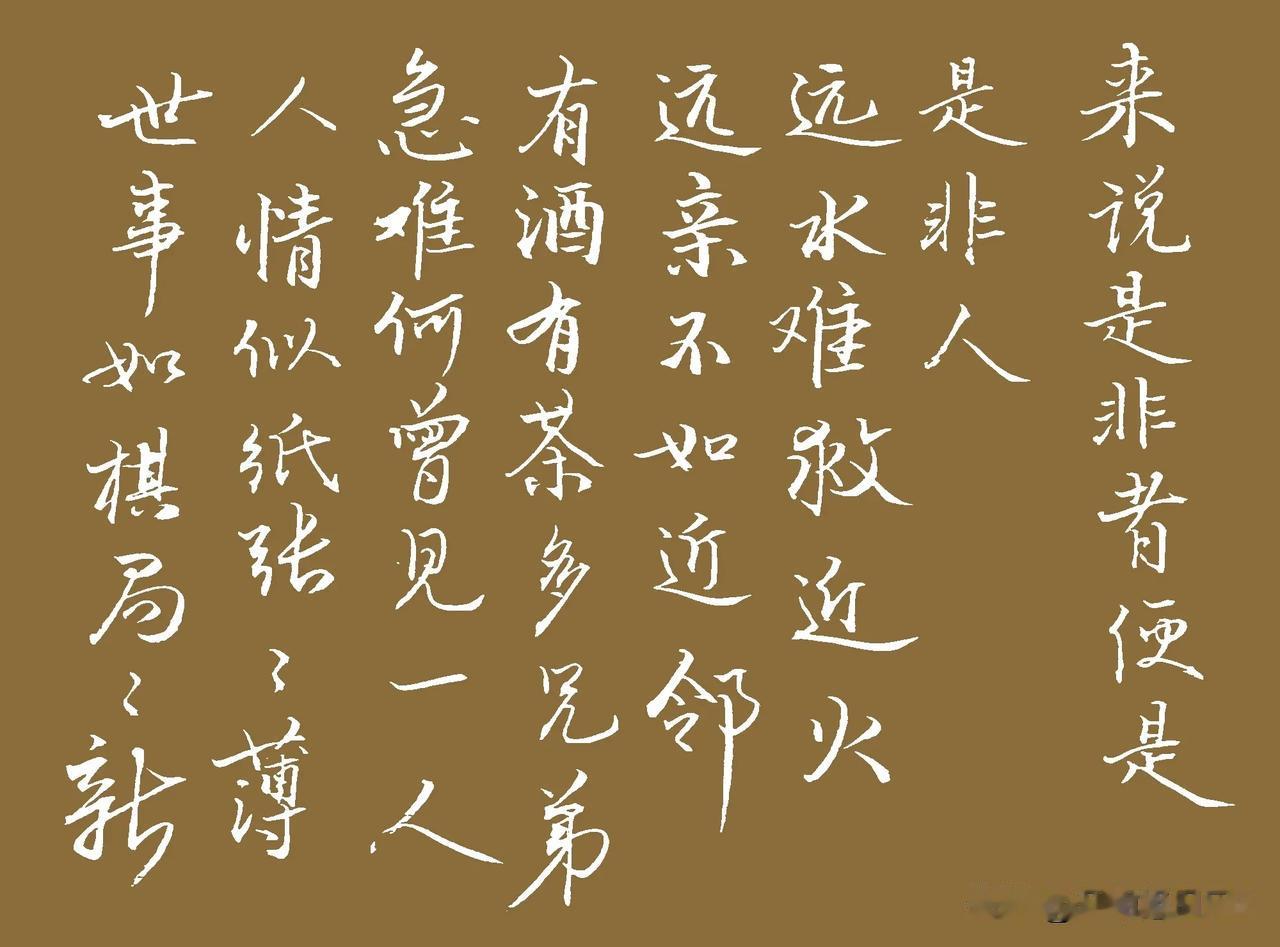 来说是非者便是
是非人
远水难救近火
远亲不如近邻
有酒有茶多兄弟
急难何曾见一人
人情似纸张〻薄
世事如棋局〻新